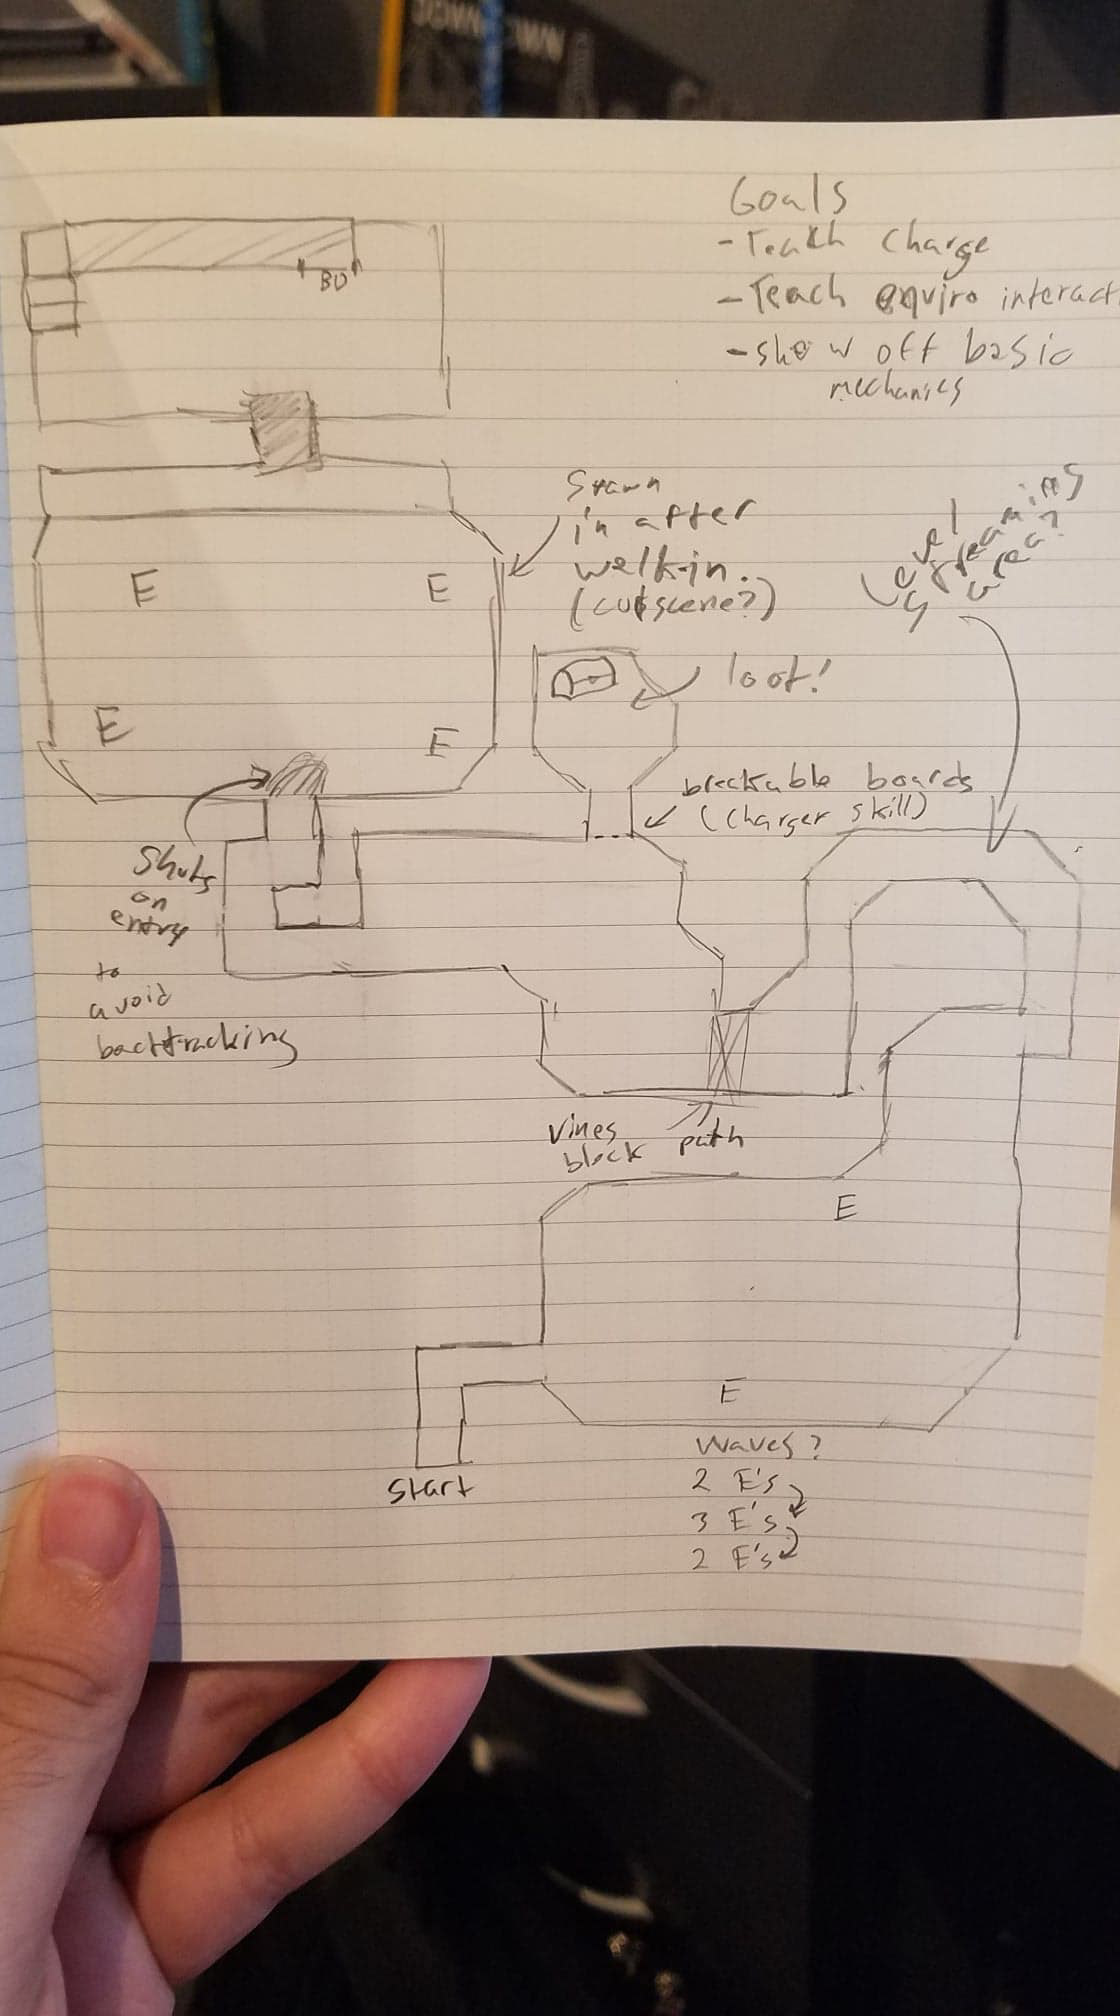 DOWNTOWN
Goals
- Teach Charge
- Teach enviro interact
- show off basic
mechanics
BD
Spawn
in after
walk-in.
(cutscene?)
Level
streaming
area?
E E
E E
loot!
breakable boards
(charger skill)
Shuts
on
entry
to
avoid
backtracking
Vines
block path
E
E
Start
Waves?
2 E's
3 E's
2 E's